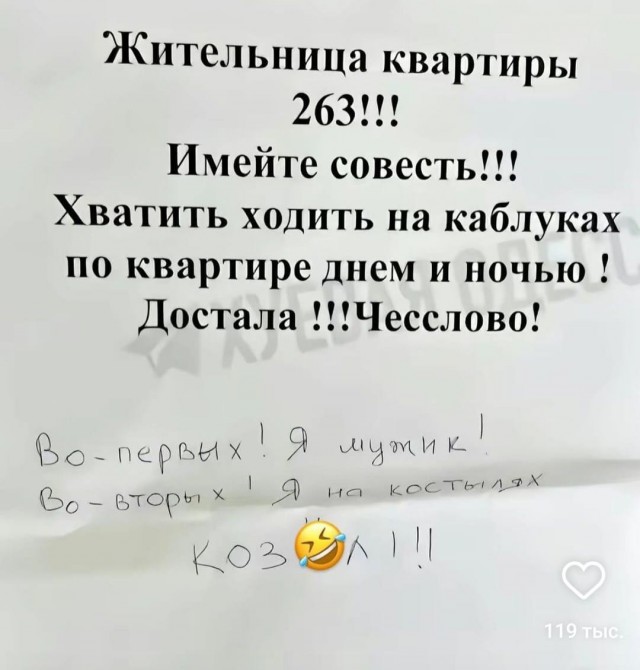 Жительница квартиры
263!!!
Имейте совесть!!!
Хватить ходить на каблуках
по квартире днем и ночью !
Достала !!!Чесслово!
ХУЕВАЯ ОДЕСС
Во-первых! Я мужик!
Во-вторых! Я на костылях
КОЗ🤣Л!!!
119 тыс.